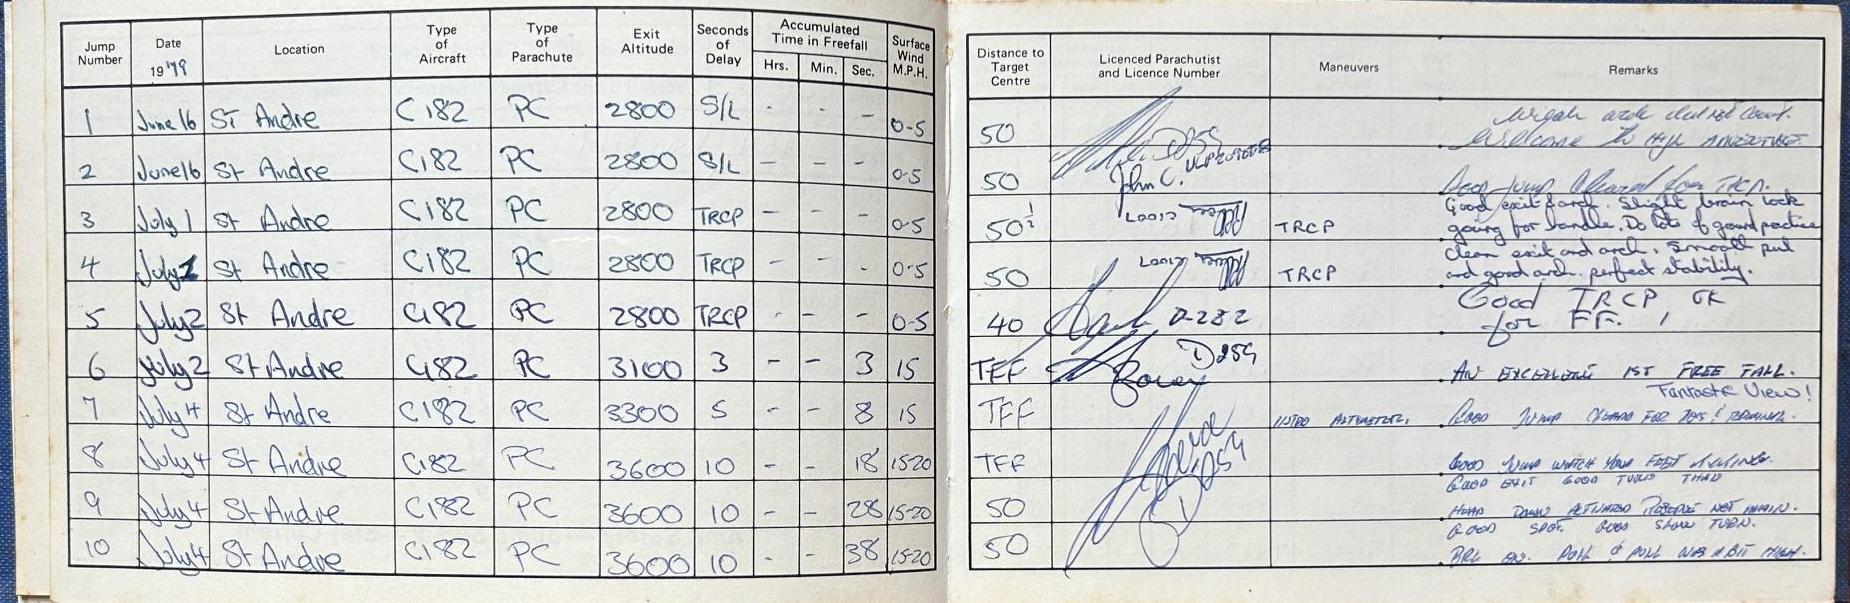 Jump Number Date 19'79 Location Type of Aircraft Type of Parachute Exit Altitude Seconds of Delay Accumulated Time in Freefall Hrs. Min. Sec. Surface Wind M.P.H. Distance to Target Centre Licenced Parachutist and Licence Number Maneuvers Remarks
1 June 16 ST Andre C182 PC 2800 S/L - - - 0-5 50 D259 Welcome to High
2 June 16 St Andre C182 PC 2800 S/L - - - 0-5 50 John C. Good Jump Cleared for TRCP.
3 July 1 St Andre C182 PC 2800 TRCP - - - 0-5 50½ TRCP Good exit & arch. Slight brain lock going for handle. Do lots of ground practice
4 July 2 St Andre C182 PC 2800 TRCP - - - 0-5 50 TRCP Clean exit and arch. Smooth pull and good arch. perfect stability.
5 July 2 St Andre C182 PC 2800 TRCP - - - 0-5 40 D-282 Good TRCP OK for FF.
6 July 2 St Andre C182 PC 3100 3 - - 3 15 TFF D259 AN EXCELLENT 1ST FREE FALL.
Fantastic View!
7 July 4 St Andre C182 PC 3300 5 - - 8 15 TFF INTRO ALTIMETER. GOOD JUMP
8 July 4 St Andre C182 PC 3600 10 - - 18 15-20 TFF D259 GOOD JUMP WATCH YOUR FEET
9 July 4 St Andre C182 PC 3600 10 - - 28 15-20 50 GOOD EXIT GOOD TURNS THEN HEAD DOWN ACTIVATED RESERVE NOT MAIN.
10 July 4 St Andre C182 PC 3600 10 - - 38 15-20 50 GOOD SPOT. GOOD SLOW TURN. & PULL WAS A BIT HIGH.